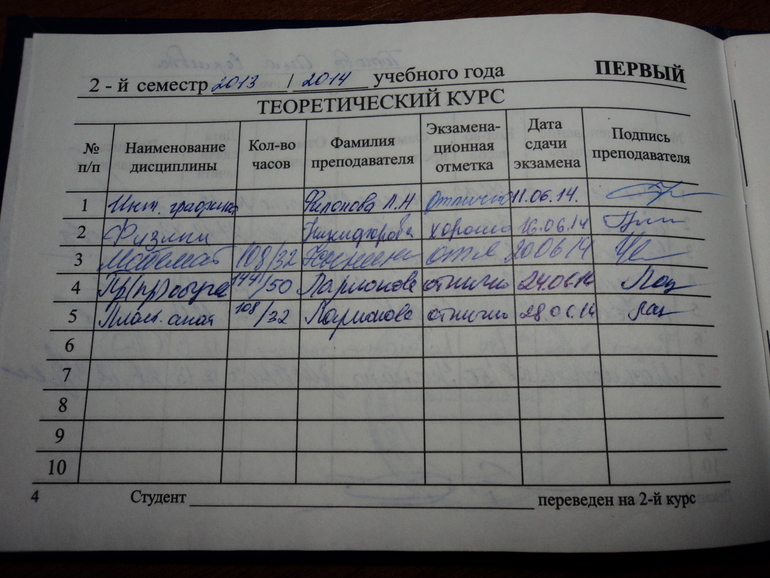 2 - й семестр 2013 / 2014 учебного года ПЕРВЫЙ
ТЕОРЕТИЧЕСКИЙ КУРС
№ п/п Наименование дисциплины Кол-во часов Фамилия преподавателя Экзамена-ционная отметка Дата сдачи экзамена Подпись преподавателя
1 Инж. графика Филонова Л.Н отлично 11.06.14.
2 Физика Никифорова хорошо 16.06.14
3 Математ 108/32 отл 20.06.14
4 144/50 Ларионова отлично 24.06.14
5 108/32 Ларионова отлично 28.06.14
6
7
8
9
10
4 Студент переведен на 2-й курс